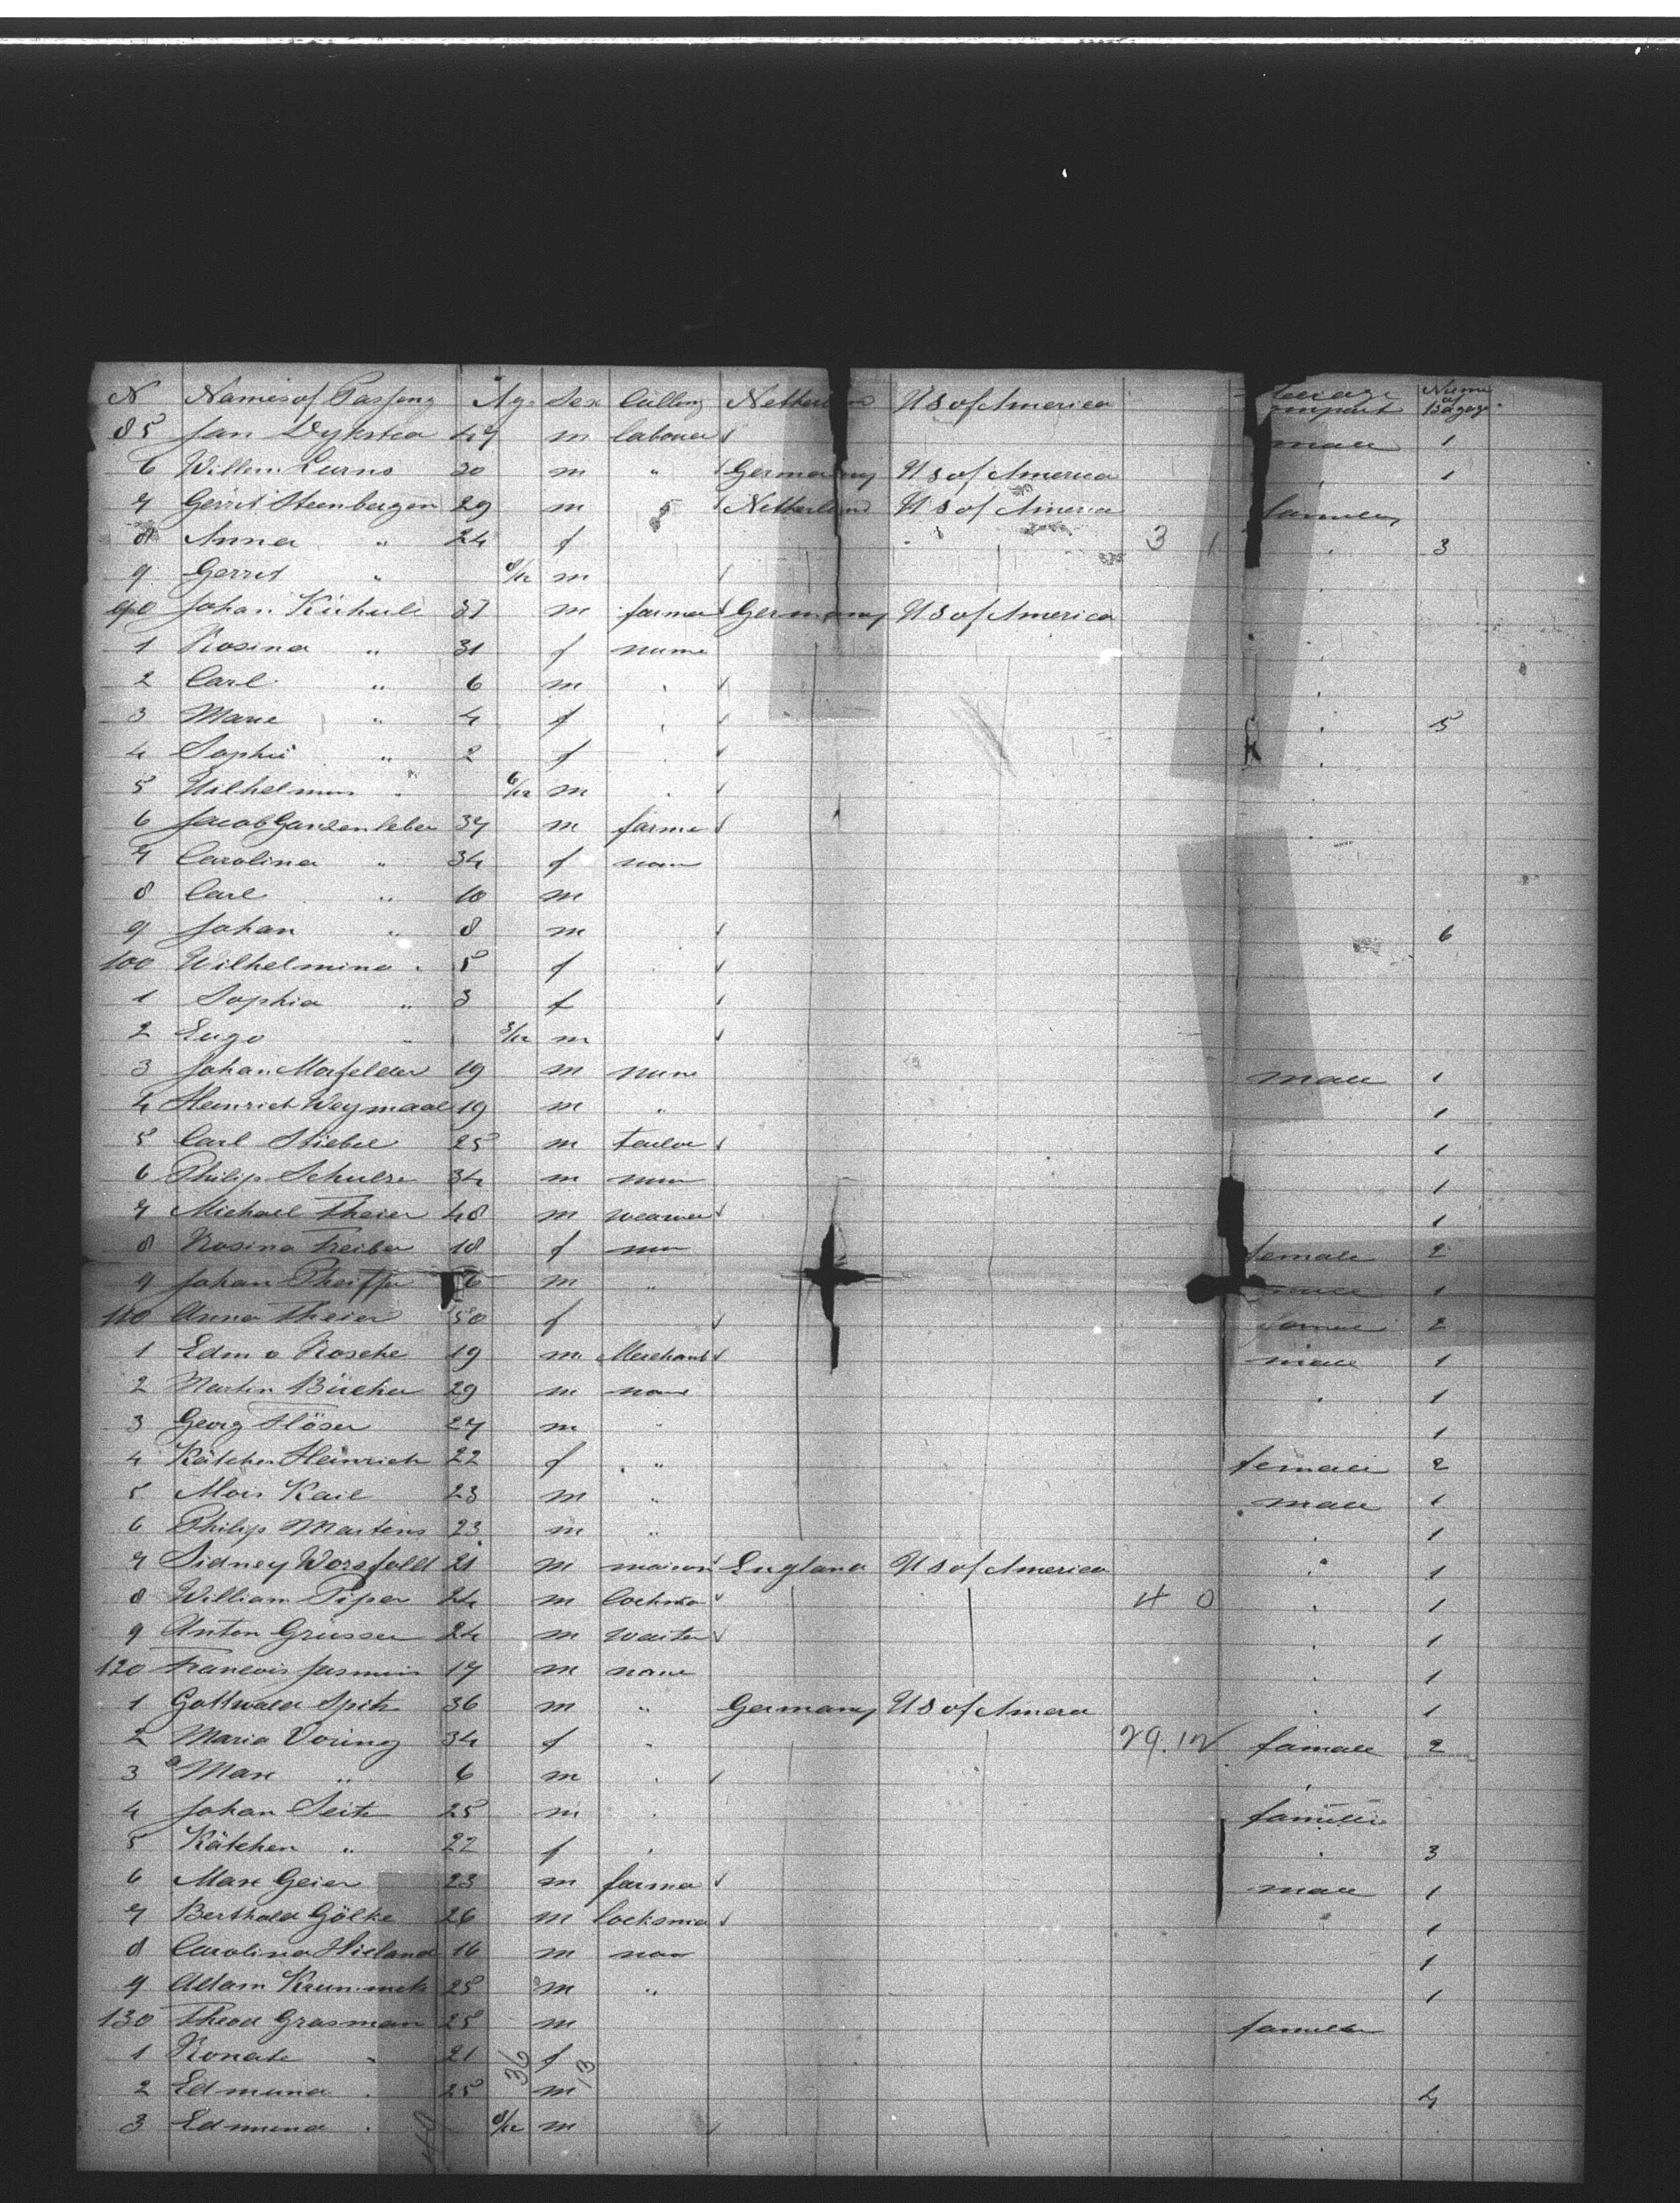 N Names of Passeng Age Sex Calling Netherland US of America Steerage compart Num of Bagage
85 Jan Dykstra 47 m laboue male 1
6 Willem Lurns 20 m " Germany US of America 1
7 Gerrit Steenbergen 29 m Netherland US of America
8 Anna " 24 f 3 1 3
9 Gerrit " 8/12 m
90 Johan 37 m farmer Germany US of America
1 Rosina " 31 f none
2 Carl " 6 m
3 Marie " 4 f 5
4 Sophie " 2 f
5 " 6/12 m
6 Jacob 37 m farme
7 Carolina " 34 f non
8 Carl " 10 m
9 Johan " 8 m 6
100 Wilhelmina " 5 f
1 Sophia " 3 f
2 " 3/12 m
3 Johan Morfelder 19 m none male 1
4 Heinrich Weymaal 19 m " 1
5 Carl Stiebel 25 m 1
6 Philip Schulze 34 m 1
7 Michael Theier 48 m 1
8 Rosina Treiber 18 f female 2
9 Johan Pfeiffer m " male 1
110 Anna Theier 50 f 2
1 Edm o Rosche 19 m Merchant male 1
2 Martin Bücher 29 m none 1
3 Georg Flöser 27 m " 1
4 Kätchen Heinrich 22 f " female 2
5 Alois Kail 23 m " male 1
6 Philip Martens 23 m " 1
7 Sidney Worsfold 21 m England US of America 1
8 William Piper 24 m 4 0 1
9 Anton 24 m waiter 1
120 Francois Jasmin 17 m none 1
1 Gottwald Spitz 36 m " Germany US of Amera 1
2 Maria Voring 34 f " 29.12 famale 2
3 Max " 6 m
4 Johan Seitz 25 m
5 Kätchen " 22 f 3
6 Max Geier 23 m farma male 1
7 Berthold Gölke 26 m locksmia 1
8 Carolina Wieland 16 m non 1
9 Adam 25 m " 1
130 Theod Grasman 25 m
1 Renate " 21 f
2 Edmund " 25 m 4
3 Edmund " 8/12 m
36 13